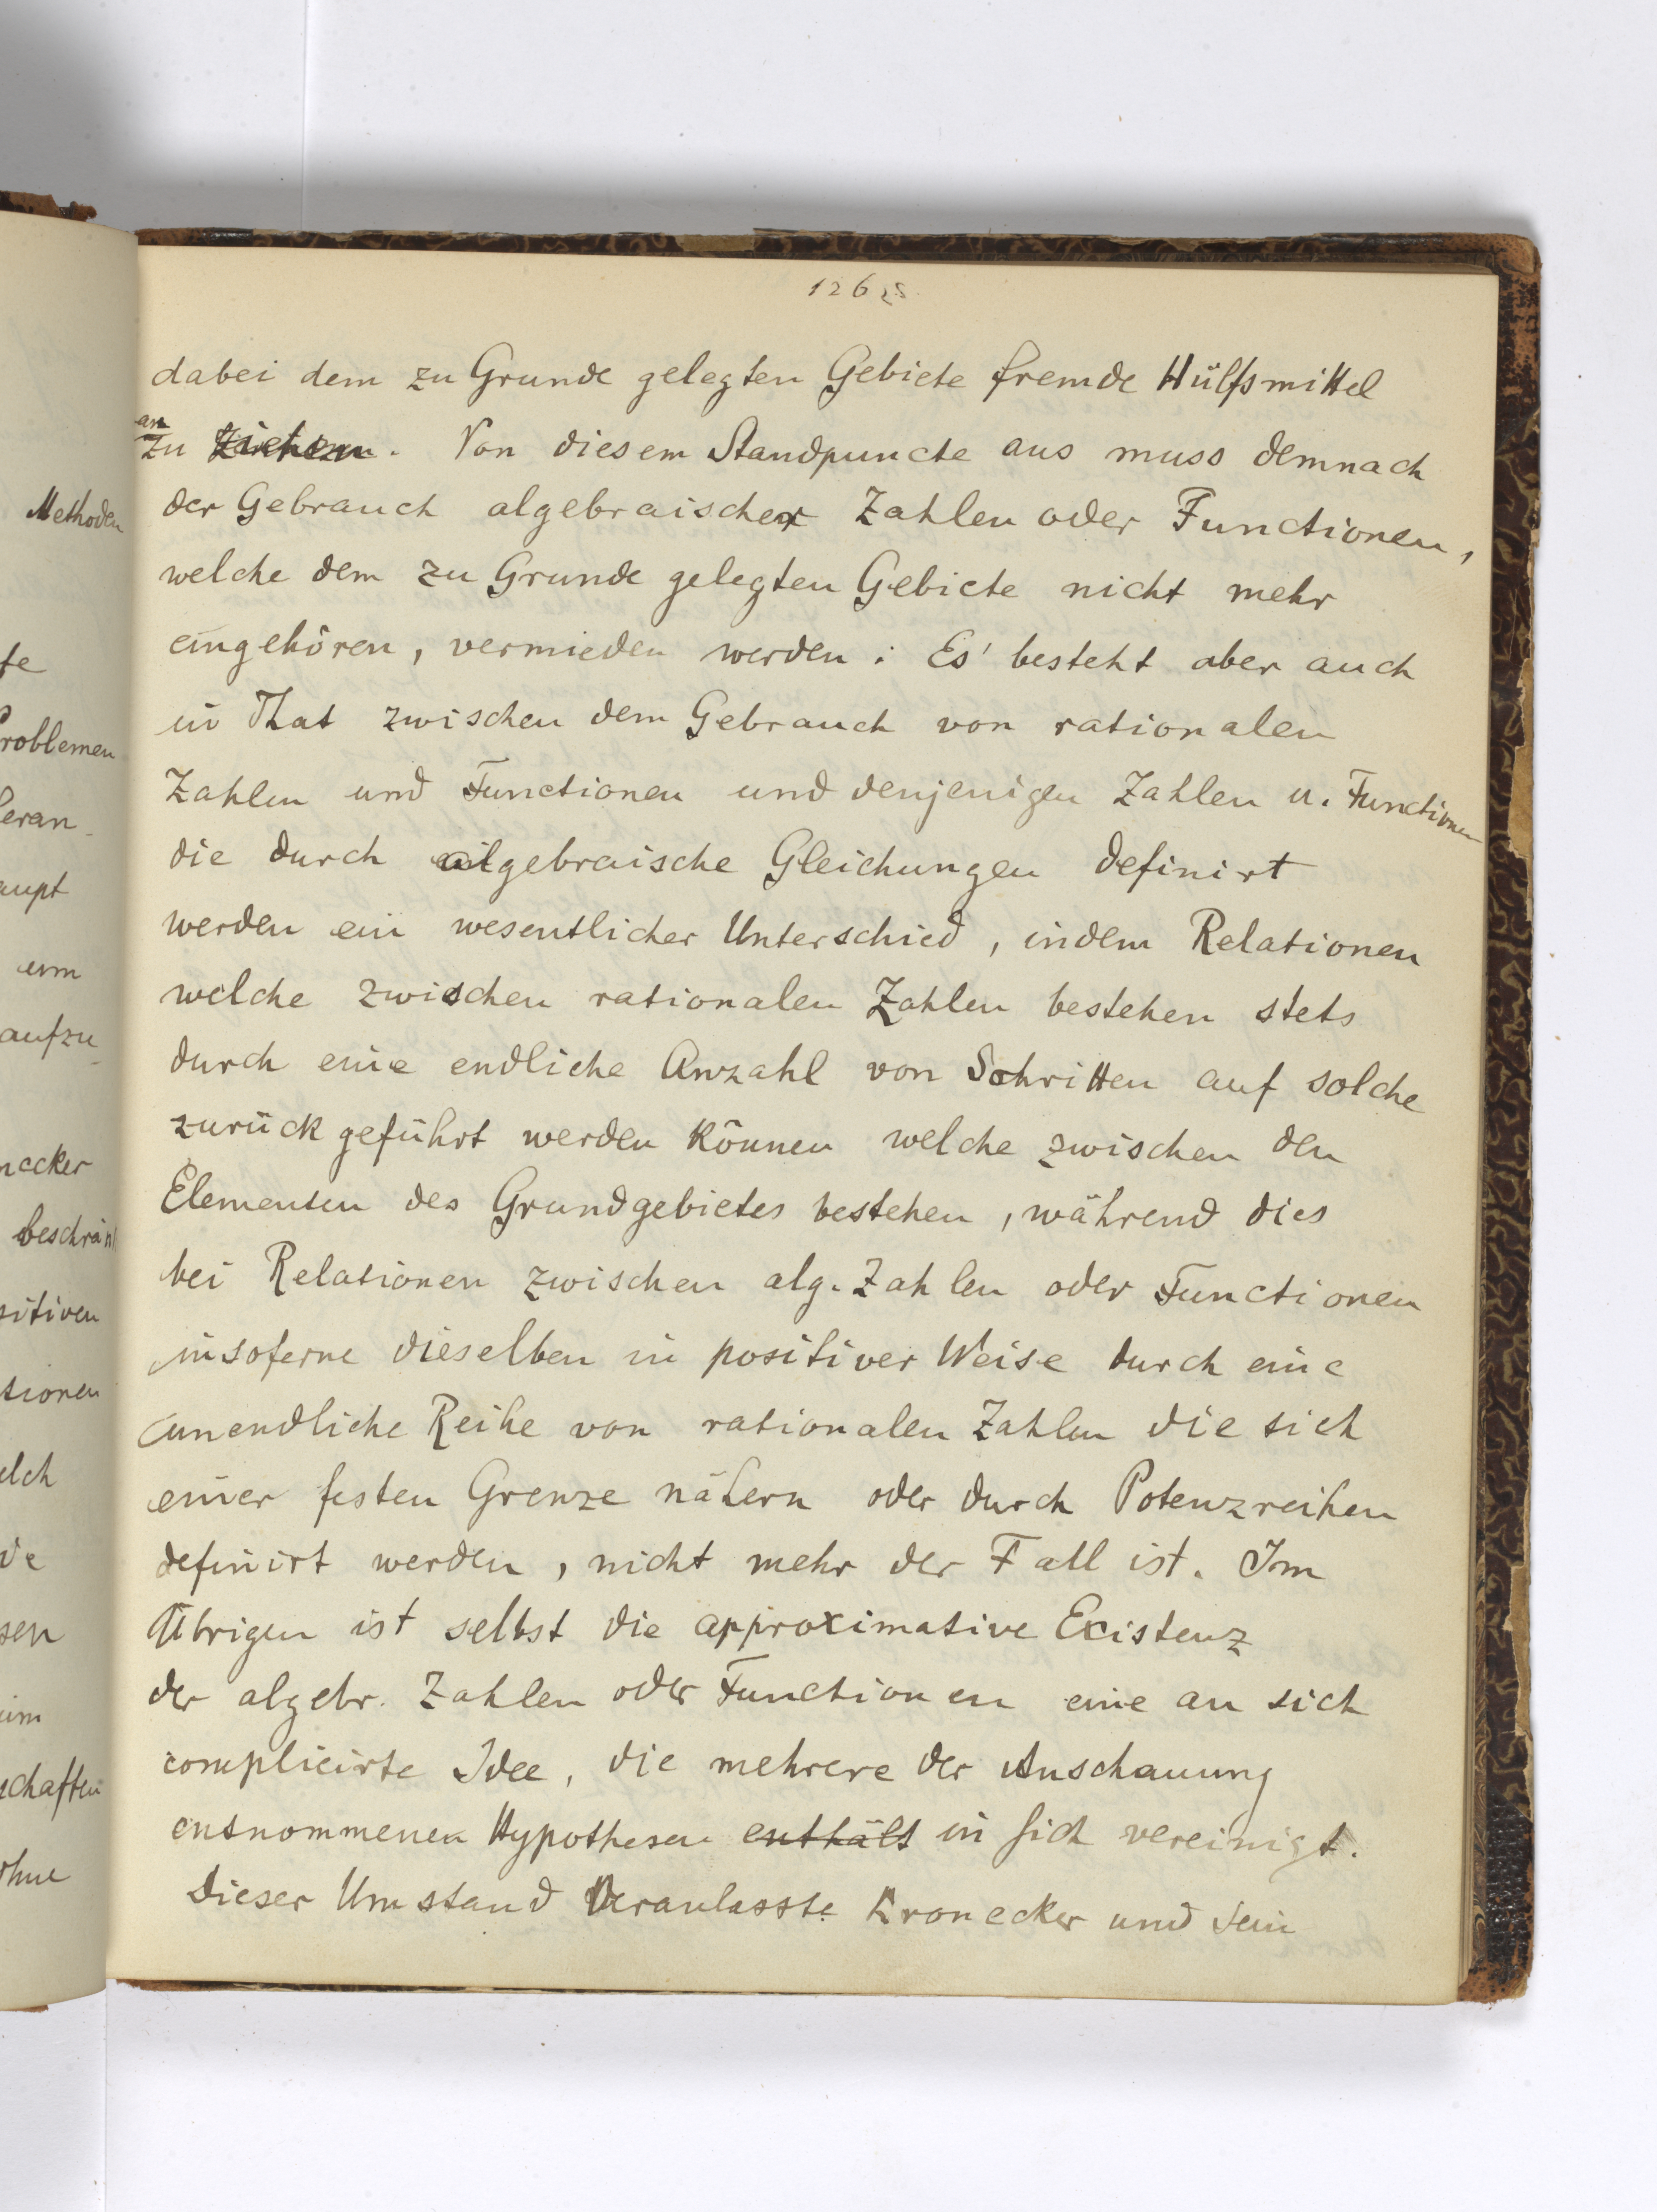 Methoden
te
roblemen
eran-
aupt
um
aufzu-
necker
beschränk
sitiven
tionen
elch
de
sen
im
schaften
ohne
126
dabei dem zu Grunde gelegten Gebiete fremde Hülfsmittel
an
zu ziehen. Von diesem Standpuncte aus muss demnach
der Gebrauch algebraischer Zahlen oder Functionen,
welche dem zu Grunde gelegten Gebiete nicht mehr
eingehören, vermieden werden. Es besteht aber auch
in That zwischen dem Gebrauch von rationalen
Zahlen und Functionen und denjenigen Zahlen u. Functionen
die durch algebraische Gleichungen definirt
werden ein wesentlicher Unterschied, indem Relationen
welche zwischen rationalen Zahlen bestehen stets
durch eine endliche Anzahl von Schritten auf solche
zurück geführt werden können welche zwischen den
Elementen des Grundgebietes bestehen, während dies
bei Relationen zwischen alg. Zahlen oder Functionen
insoferne dieselben in positiver Weise durch eine
unendliche Reihe von rationalen Zahlen die sich
einer festen Grenze nähern oder durch Potenzreihen
definirt werden, nicht mehr der Fall ist. Im
Übrigen ist selbst die approximative Existenz
der algebr. Zahlen oder Functionen eine an sich
complicirte Idee, die mehrere der Anschauung
entnommenen Hypothesen enthält in sich vereinigt.
Dieser Umstand veranlasste Kronecker und sein